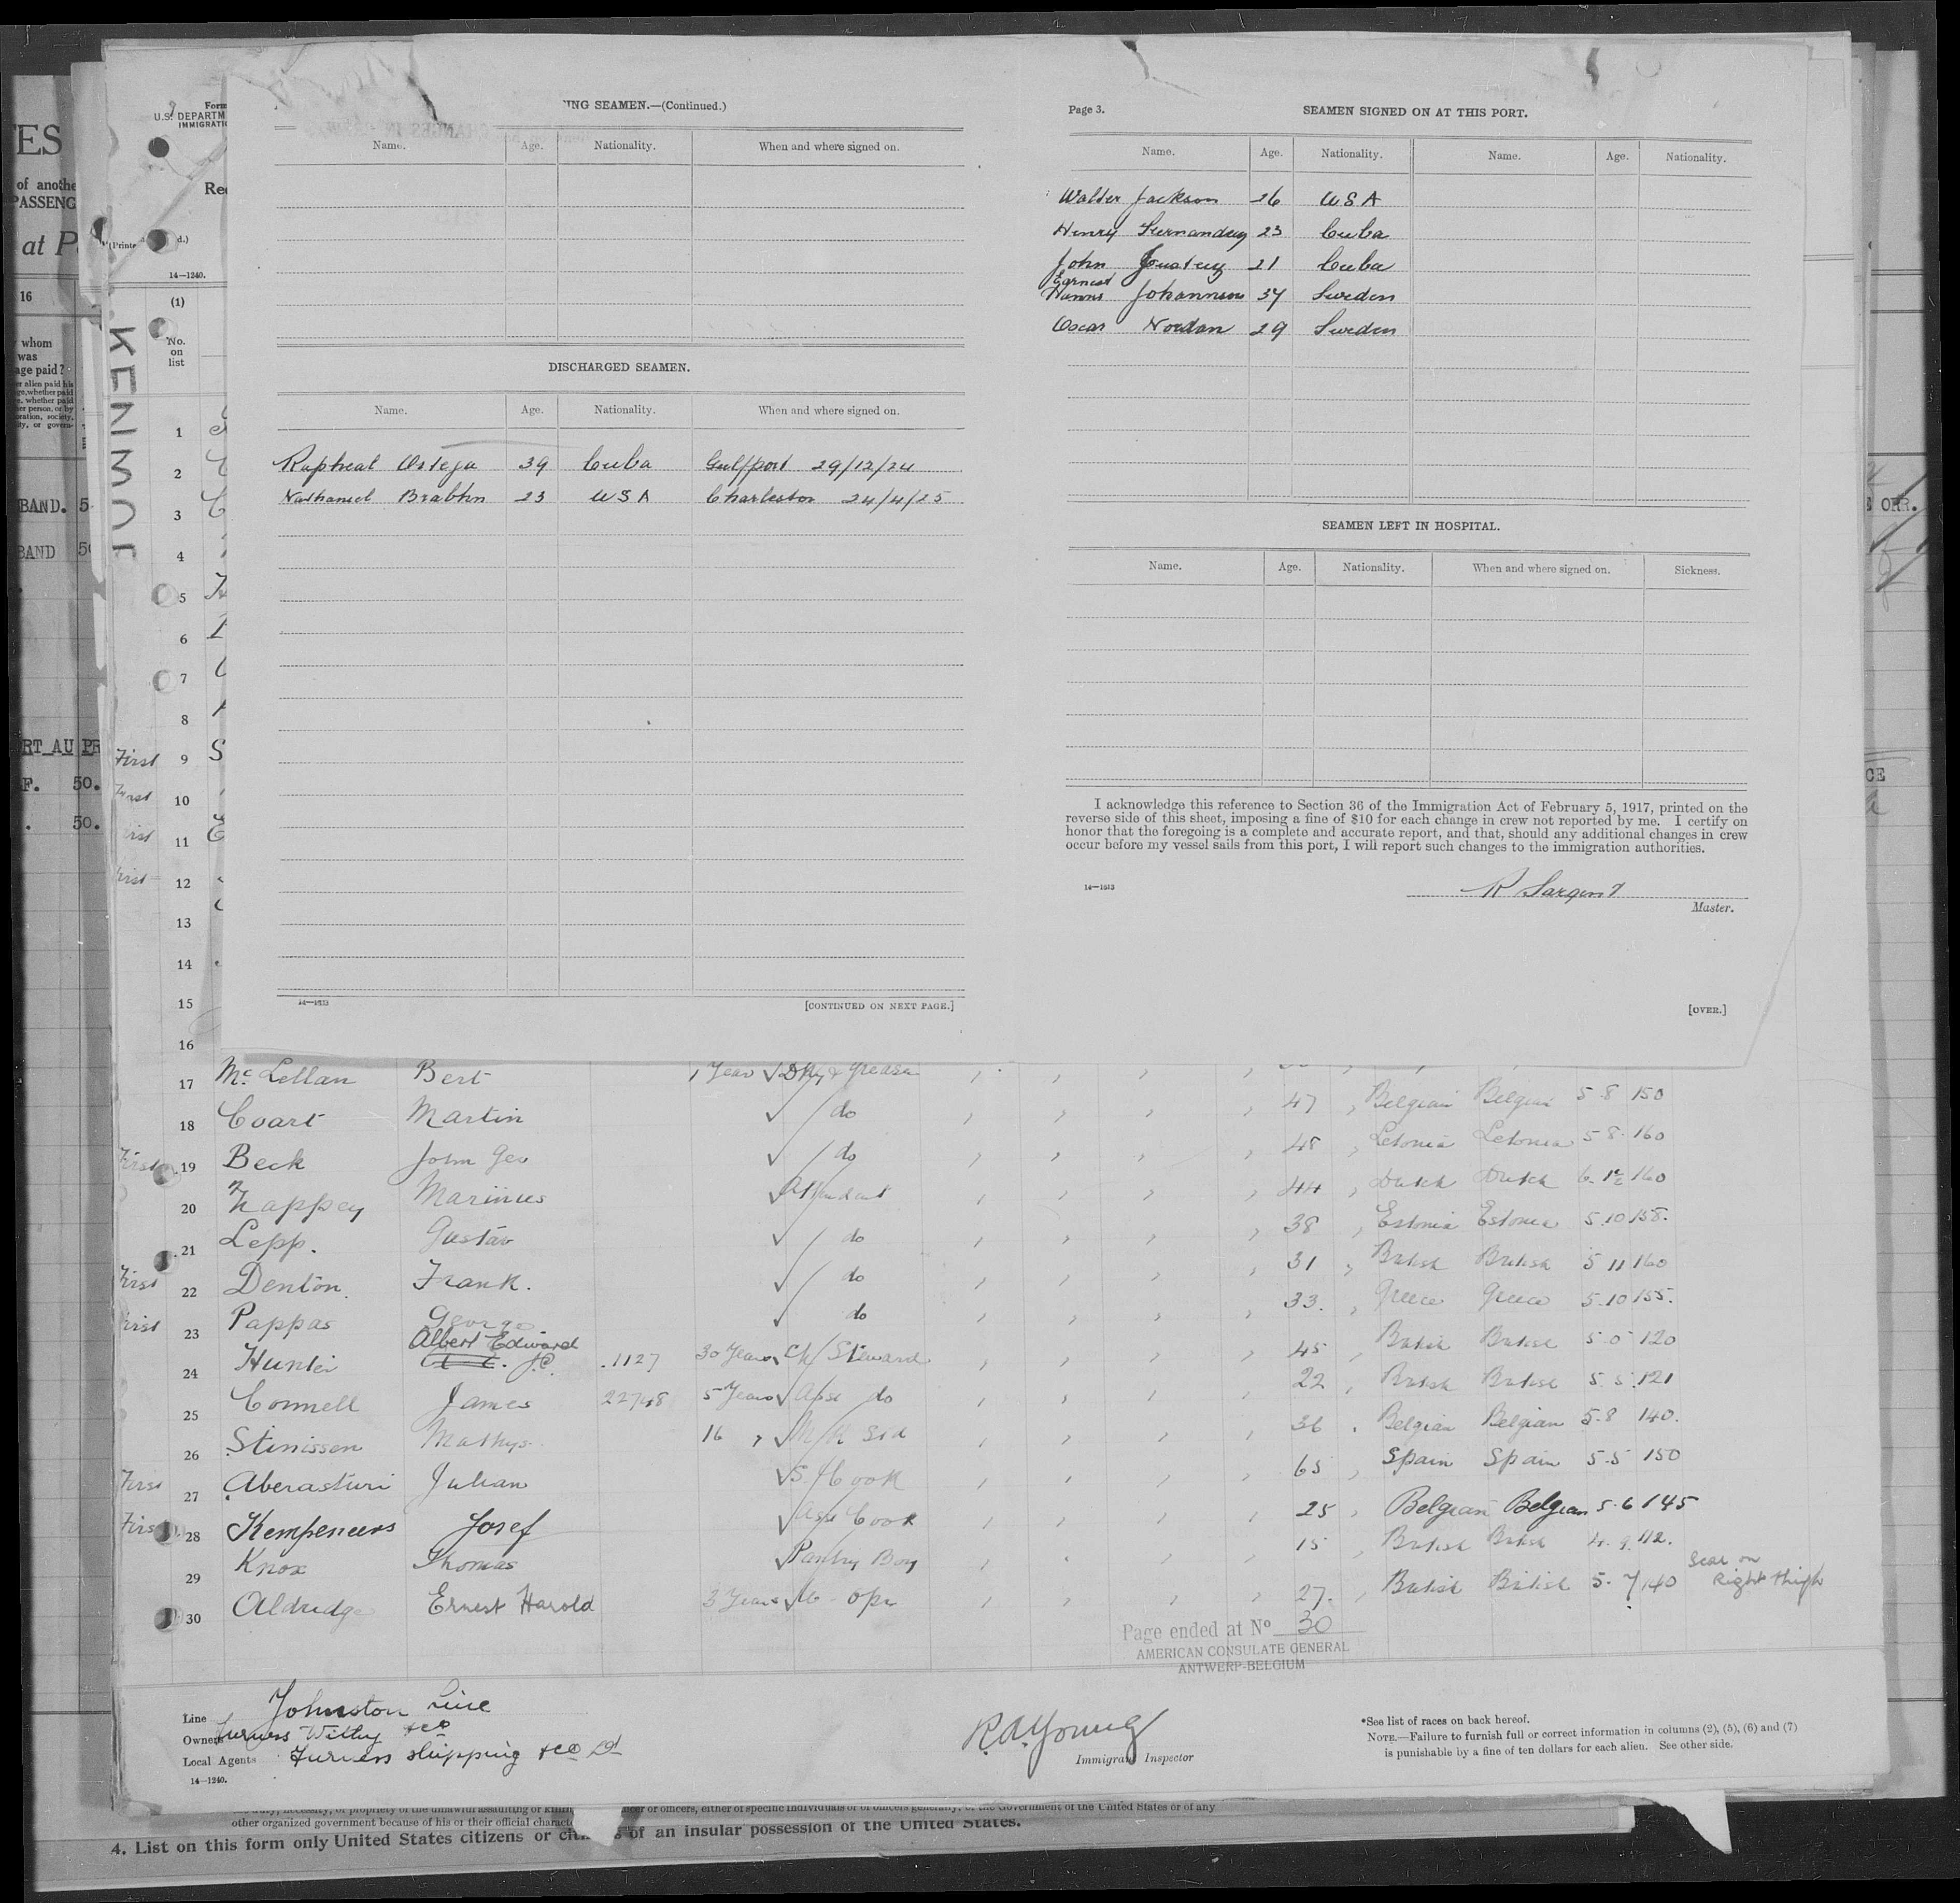 ING SEAMEN.—(Continued.)
Name. Age. Nationality. When and where signed on.
DISCHARGED SEAMEN.
Name. Age. Nationality. When and where signed on.
Rapheal Ortega 39 Cuba Gulfport 29/12/24
Nathaniel Brabhn 23 USA Charleston 24/4/25
14—1313
[CONTINUED ON NEXT PAGE.]
Page 3.
SEAMEN SIGNED ON AT THIS PORT.
Name. Age. Nationality. Name. Age. Nationality.
Walter Jackson 26 USA
Henry 23 Cuba
John 21 Cuba
Earnest
Hanns Johannson 37 Sweden
Oscar Nordan 29 Sweden
SEAMEN LEFT IN HOSPITAL.
Name. Age. Nationality. When and where signed on. Sickness.
I acknowledge this reference to Section 36 of the Immigration Act of February 5, 1917, printed on the
reverse side of this sheet, imposing a fine of $10 for each change in crew not reported by me. I certify on
honor that the foregoing is a complete and accurate report, and that, should any additional changes in crew
occur before my vessel sails from this port, I will report such changes to the immigration authorities.
14—1313
R Sargent
Master.
[OVER.]
Form
U.S. DEPARTM
IMMIGRATIO
14—1240.
(1)
No.
on
list
KENMO
1
2
3
4
5
6
7
8
First 9
First 10
11
12
13
14
15
16
17 McLellan Bert 1 Year
18 Coart Martin do 47 Belgian Belgian 5 8 150
First 19 Beck John Geo do 48 Letonia Letonia 5 8 160
20 Nappey Marinus Attendant 44 Dutch Dutch 6. 1½ 160
21 Lepp. Gustav do 38 Estonia Estonia 5.10 158.
First 22 Denton Frank. do 31 British British 5 11 160
First 23 Pappas George do 33. Greece Greece 5.10 155.
Albert Edward
24 Hunter 1127 30 Years Ch Steward 45 British British 5 0 120
25 Connell James 22748 5 Years Asse do 22 British British 5 5 121
26 Stinissen Mathys 16 36 Belgian Belgian 5 8 140.
First 27 Aberasturi Julian S/Cook 65 Spain Spain 5.5 150
First 28 Kempeneers Josef Asse Cook 25 Belgian Belgian 5.6 145
29 Knox Thomas Pantry Boy 15 British British 4. 9 112.
30 Aldridge Ernest Harold 3 Years Opr 27. British British 5. 7 140 Scar on
Right thigh
Page ended at No 30
AMERICAN CONSULATE GENERAL
ANTWERP-BELGIUM
Line Johnston Line
Owners Furness Withy & Co
Local Agents Furness Shipping & Co Ld
14—1240.
R.A. Young
Immigrant Inspector
*See list of races on back hereof.
NOTE.—Failure to furnish full or correct information in columns (2), (5), (6) and (7)
is punishable by a fine of ten dollars for each alien. See other side.
other organized government because of his or their official
4. List on this form only United States citizens or of an insular possession of the United States.